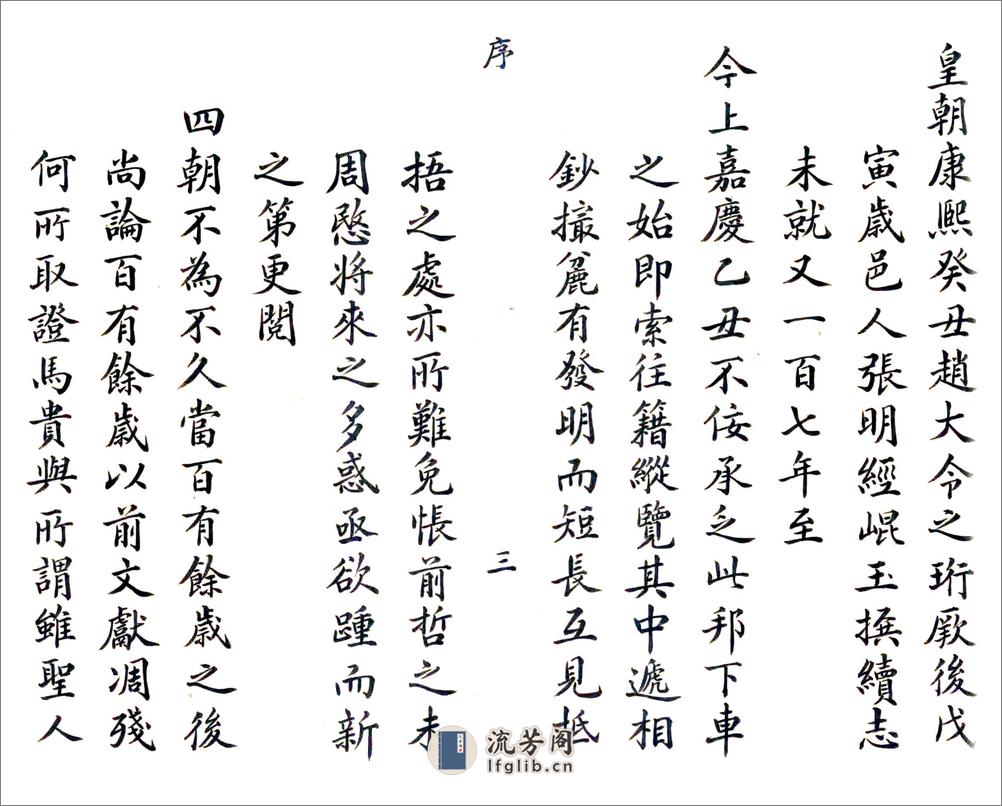 皇朝康熙癸丑趙大令之珩厥後戊
寅歲邑人張明經崐玉撰續志
未就又一百七年至
今上嘉慶乙丑不佞承乏此邦下車
之始即索往籍縱覽其中遞相
鈔撮麄有發明而短長互見抵
序
三
捂之處亦所難免悵前哲之未
周愍將來之多惑亟欲踵而新
之第更閱
四朝不為不久當百有餘歲之後
尚論百有餘歲以前文獻凋殘
何所取證馬貴與所謂雖聖人
流芳阁
lfglib.cn